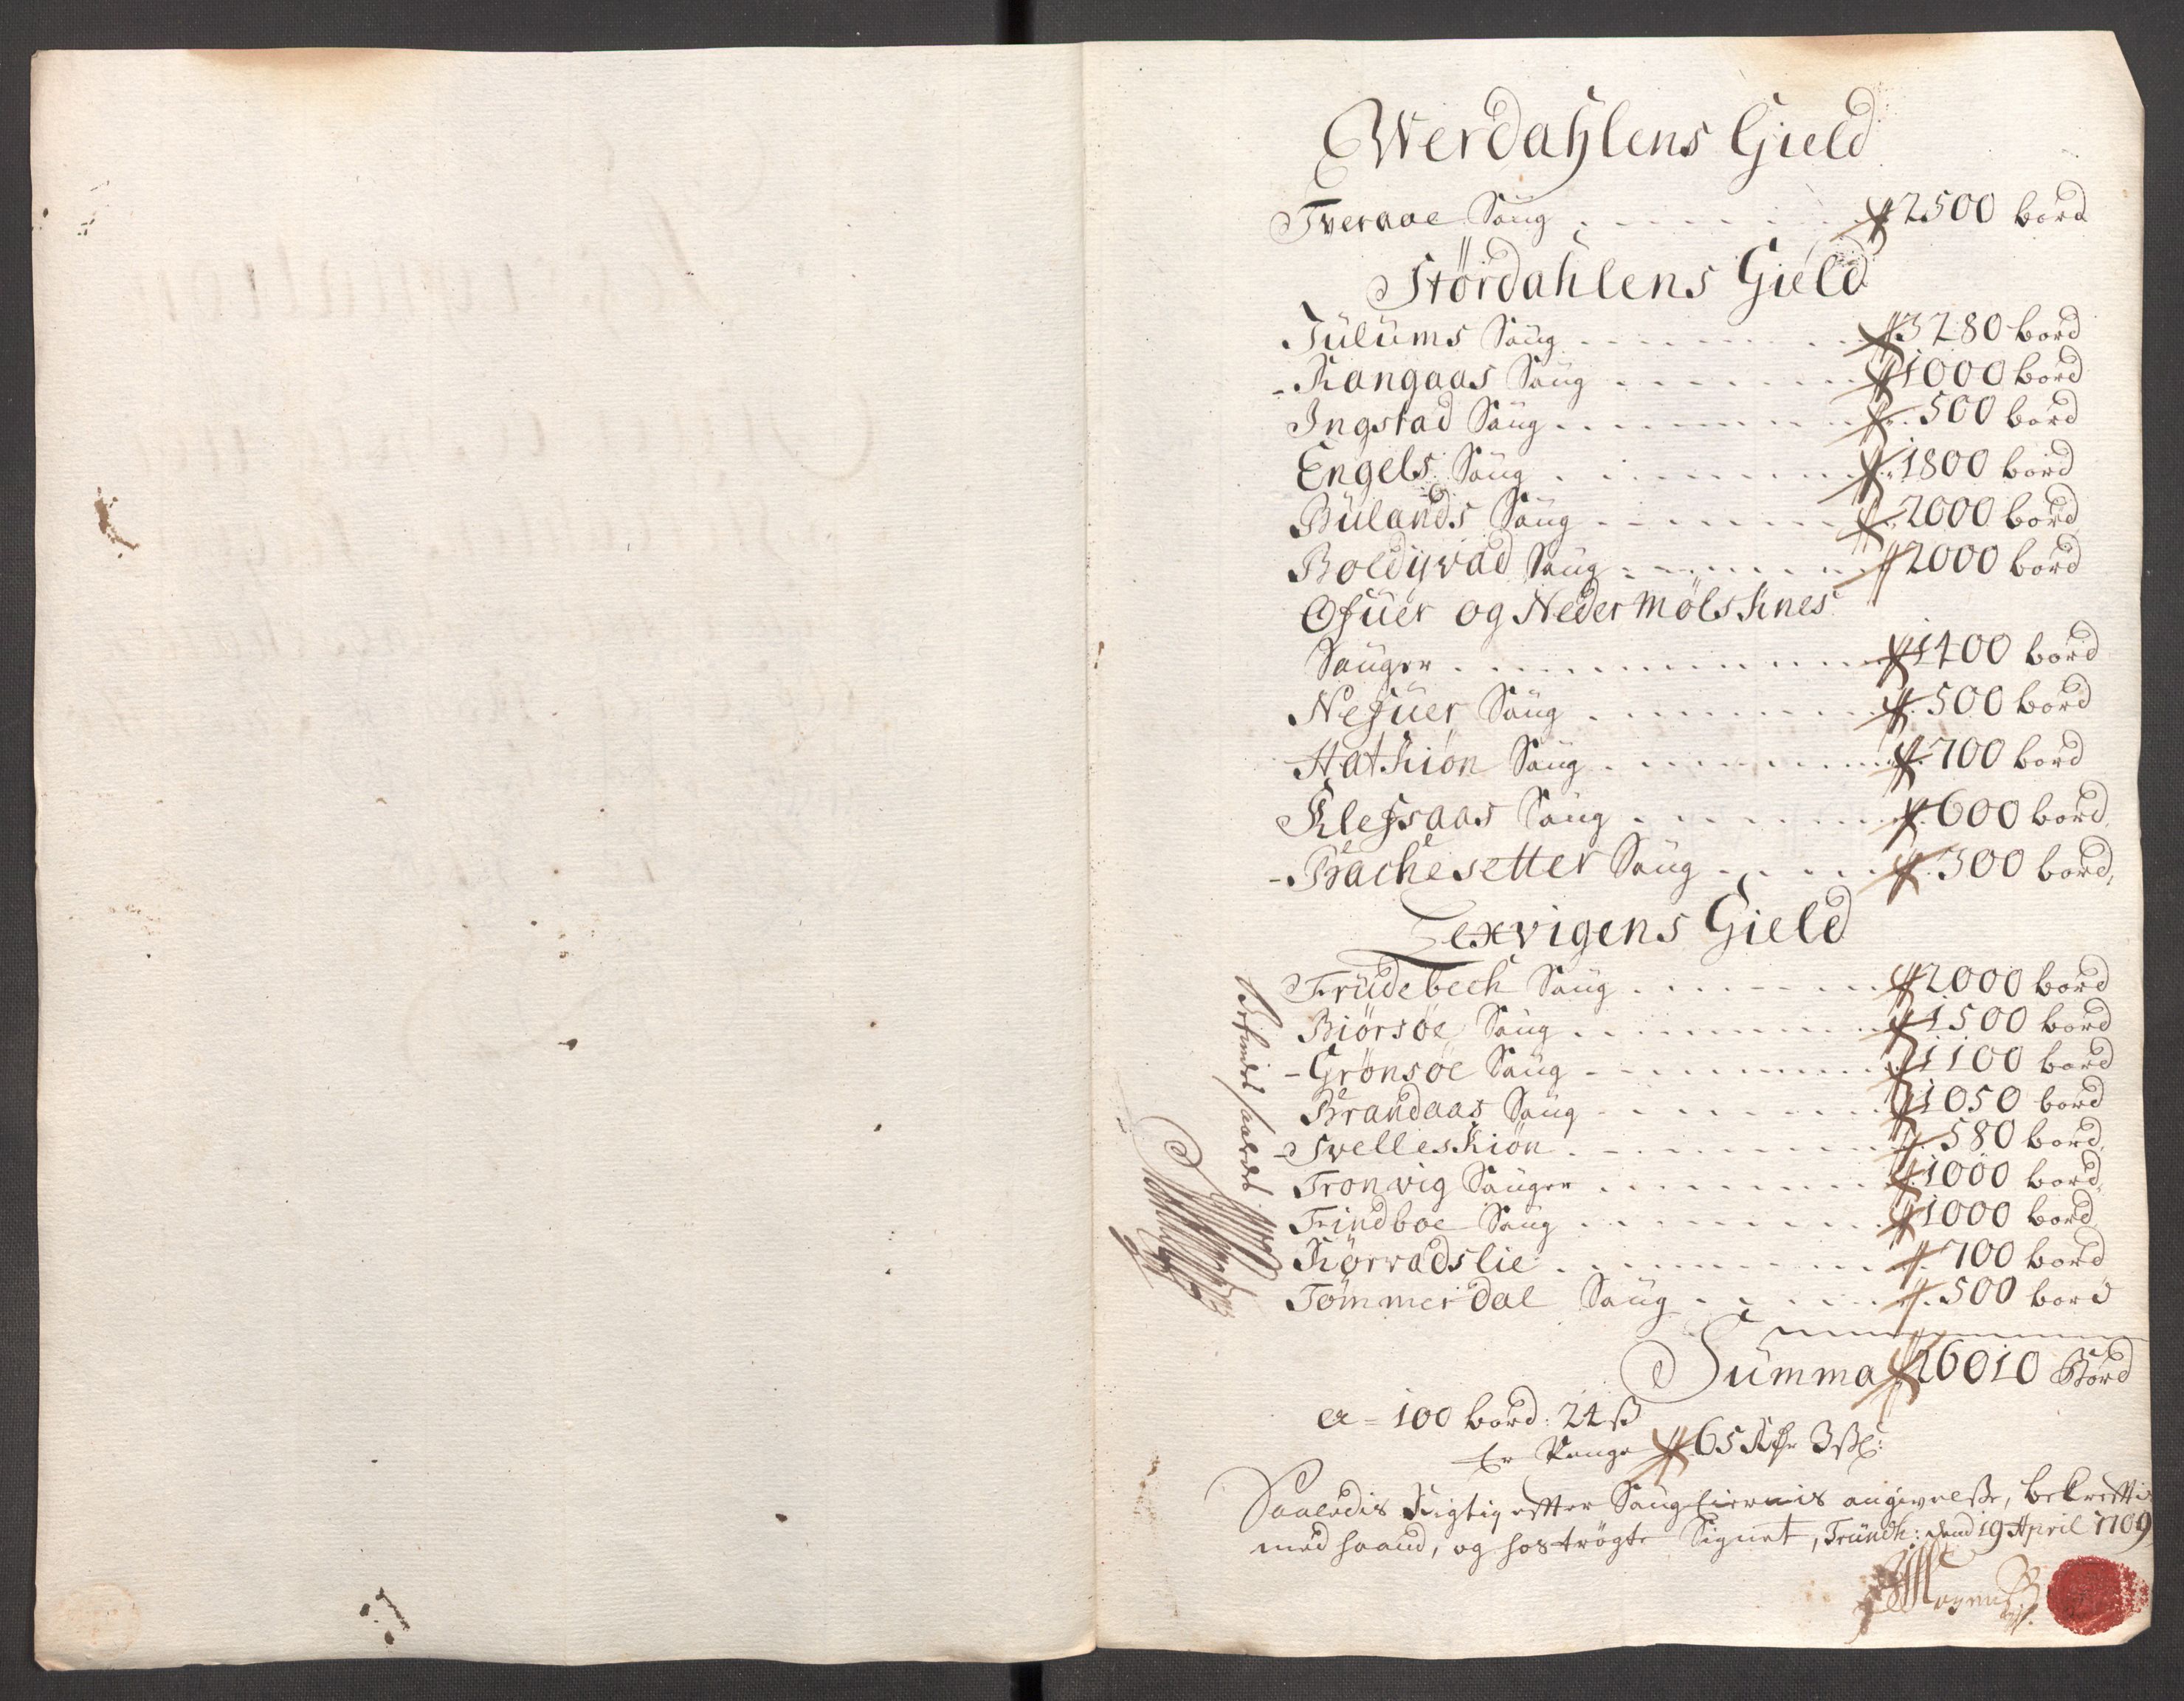 Werdahlens Gield
Tveraae Saug . . . . . . 2500 bord
Størdahlens Gield
Julums Saug . . . . . . 3280 bord
Kangaas Saug . . . . . . 1000 bord
Ingstad Saug . . . . . . 500 bord
Engels Saug . . . . . . 1800 bord
Bulands Saug . . . . . . 2000 bord
Boldÿvad Saug . . . . . . 2000 bord
Ofuer og Neder Mølsknes
Sauger . . . . . . 1400 bord
Nefuer Saug . . . . . . 500 bord
Hatkiøn Saug . . . . . . 700 bord
Klefsaas Saug . . . . . . 600 bord
Bachesetter Saug . . . . . 300 bord,
Lexvigens Gield
Frudebech Saug . . . . . . 2000 bord
Biørsøe Saug . . . . . . 1500 bord
Grønsøe Saug . . . . . . 1100 bord
Brandaas Saug . . . . . . 1050 bord
Svelleskiøn . . . . . . 580 bord,
Tronvig Sauger . . . . . . 1000 bord,
Findboe Saug . . . . . . 1000 bord
Kiørvadslie . . . . . . 700 bord
Tømmerdal Saug . . . . . . 500 bord
Summa 26010 Bord
er = 100 bord: 24 ß
Er Penge 65 Rdr 3 ß:
Saaledis Rigtig efter Saug Eiernis angivelße, bekreftis
med haand, og hostrøgte Signet, Trundh: dend 19 April 1709
Befindes saaledes